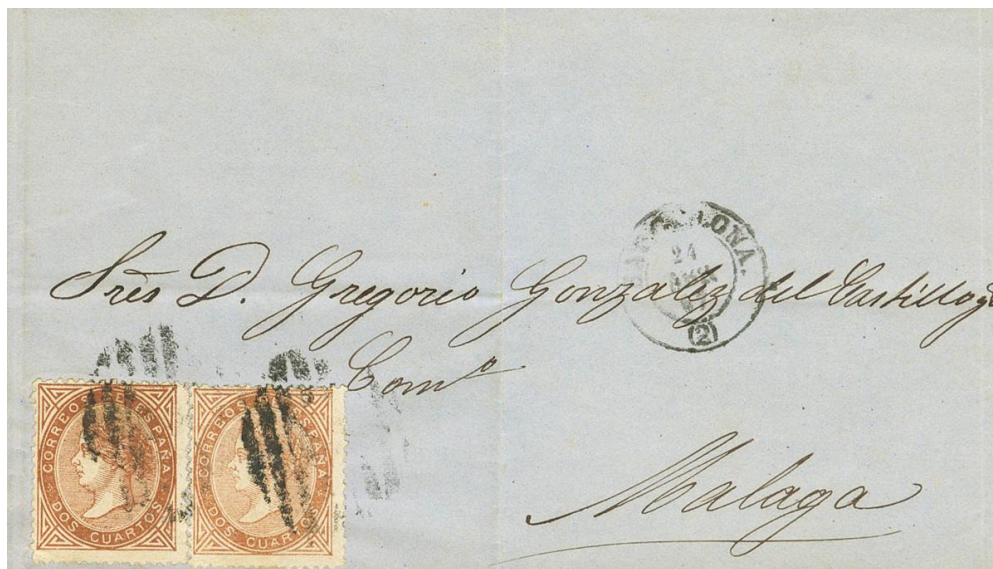 BARCELONA.
24
(2)
Sres D. Gregorio Gonzalez del Castillo y
Comª
CORREOS DE ESPAÑA
DOS CUARTOS
CORREOS DE ESPAÑA
DOS CUARTOS
Malaga